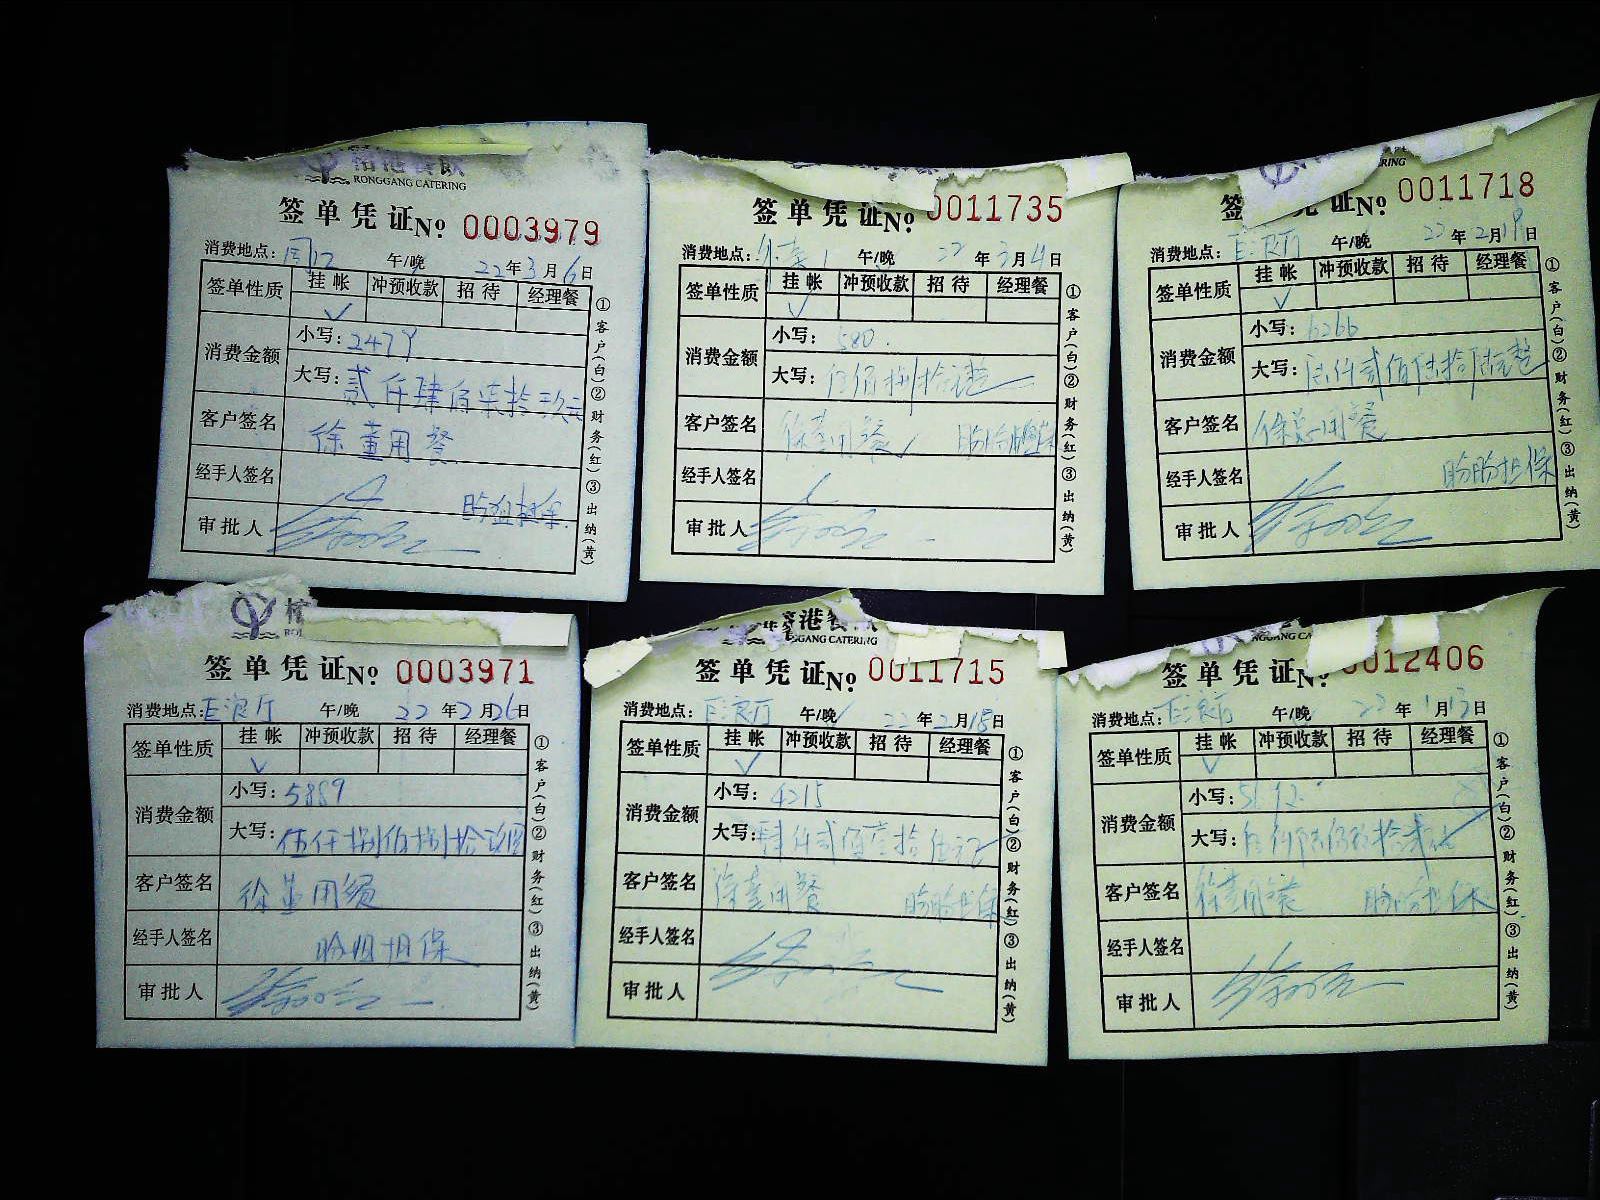 RONGGANG CATERING
签单凭证No 0003979
消费地点: 午/晚 22年3月6日
签单性质 挂帐 冲预收款 招待 经理餐
消费金额 小写: 2479
大写: 贰仟肆佰柒拾玖元
客户签名 徐董用餐
经手人签名
审批人
①客户(白)②财务(红)③出纳(黄)
签单凭证No 0011735
消费地点: 外卖 午/晚 22年3月4日
签单性质 挂帐 冲预收款 招待 经理餐
消费金额 小写: 580.
大写: 伍佰捌拾元整
客户签名 徐董用餐 盼盼担保
经手人签名
审批人
①客户(白)②财务(红)③出纳(黄)
RING
签 凭证No 0011718
消费地点: 巨浪厅 午/晚 22年2月19日
签单性质 挂帐 冲预收款 招待 经理餐
消费金额 小写: 6266
大写: 陆仟贰佰陆拾陆元整
客户签名 徐总用餐
经手人签名 盼盼担保
审批人
①客户(白)②财务(红)③出纳(黄)
签单凭证No 0003971
消费地点: 巨浪厅 午/晚 22年2月26日
签单性质 挂帐 冲预收款 招待 经理餐
消费金额 小写: 5889
大写: 伍仟捌佰捌拾玖圆
客户签名 徐董用餐
经手人签名 担保
审批人
①客户(白)②财务(红)③出纳(黄)
港餐
GGANG CATERING
签单凭证No 0011715
消费地点: 巨浪厅 午/晚 22年2月18日
签单性质 挂帐 冲预收款 招待 经理餐
消费金额 小写: 4215
大写: 肆仟贰佰壹拾伍元
客户签名 徐董用餐 盼盼担保
经手人签名
审批人
①客户(白)②财务(红)③出纳(黄)
GGANG CA
签单凭证N 0012406
消费地点: 巨浪厅 午/晚 22年1月13日
签单性质 挂帐 冲预收款 招待 经理餐
消费金额 小写:
大写:
客户签名 徐董用餐 盼盼担保
经手人签名
审批人
①客户(白)②财务(红)③出纳(黄)